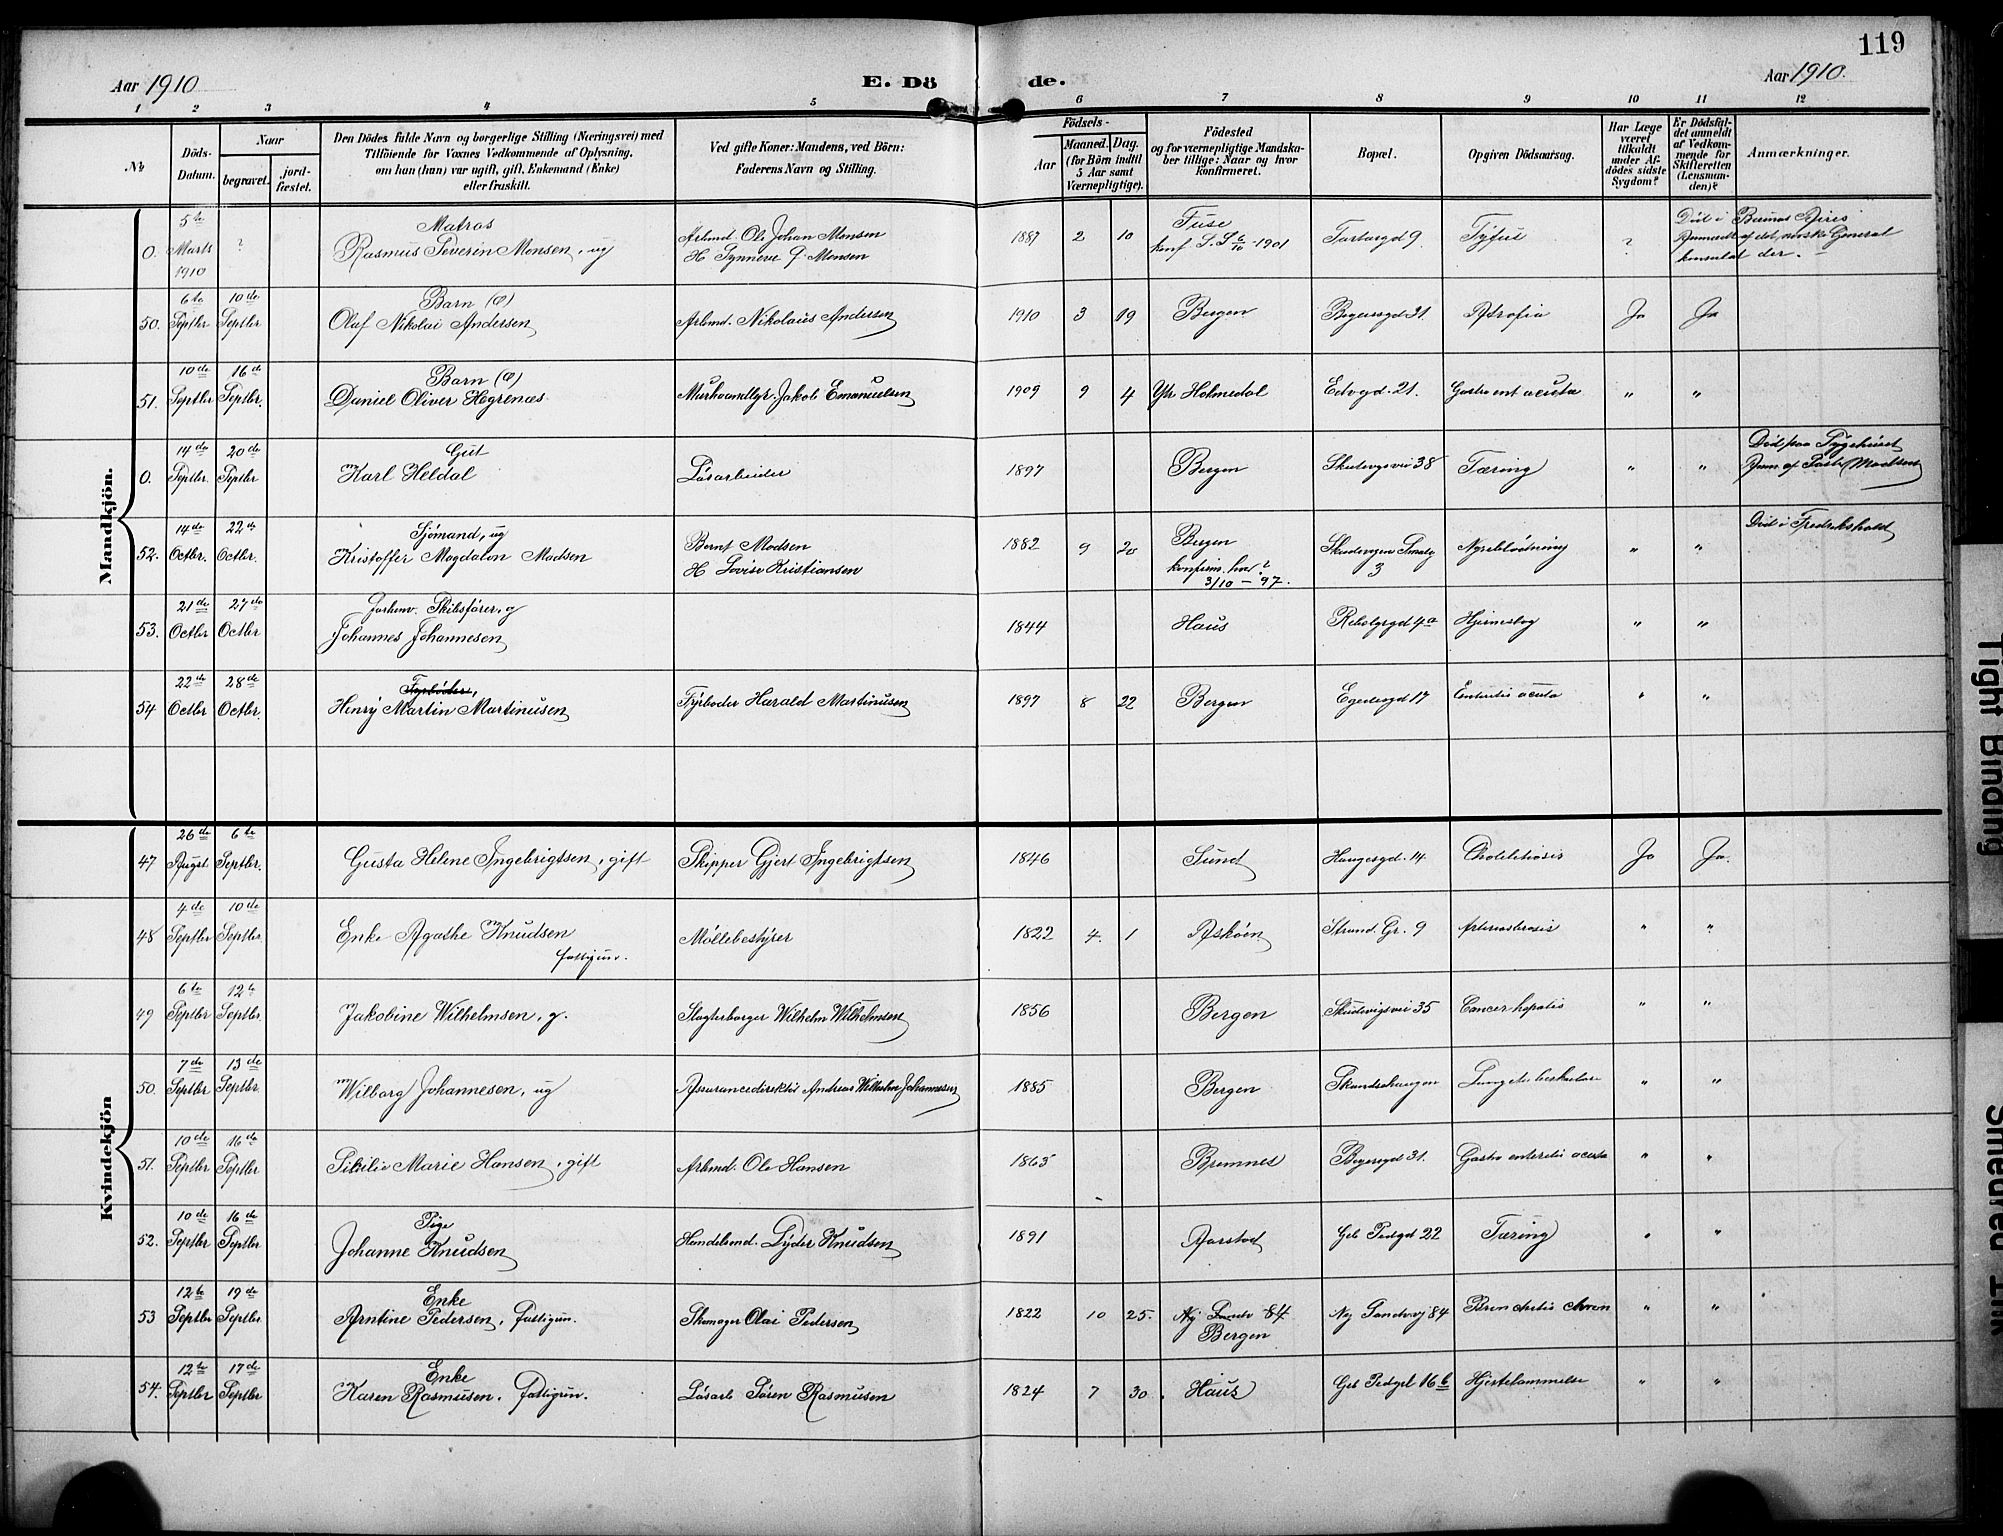 119
Aar 1910
E. Dö
de.
Aar 1910.
1 2 3 4 5 6 7 8 9 10 11 12
№
Döds-
Datum.
Naar
begravet.
jord-
fæstet.
Den Dödes fulde Navn og borgerlige Stilling (Næringsvei) med
Tilföiende for Voxnes Vedkommende af Oplysning,
om han (hun) var ugift, gift, Enkemand (Enke)
eller fraskilt.
Ved gifte Koner: Mandens, ved Börn:
Faderens Navn og Stilling.
Födsels-
Aar
Maaned.
Dag.
(for Börn indtil
5 Aar samt
Værnepligtige).
Födested
og for værnepligtige Mandska-
ber tillige: Naar og hvor
konfirmeret.
Bopæl.
Opgiven Dödsaarsag.
Har Læge
været
tilkaldt
under Af-
dödes sidste
Sygdom?
Er Dödsfal-
det anmeldt
af Vedkom-
mende for
Skifteretten
(Lensman-
den)?
Anmærkninger.
Mandkjön.
5te Matros Arbmd. Ole Johan Monsen Fuse Död i Buenos Ayres
0. Marts ? Rasmus Severin Monsen, ug 1887 2 10 Tartargd 9. Tyfus ? Anmeldt af det norske General
1910 H. Synneve J. Monsen konf. 1901 konsulat der.
6te 10de Barn (♂)
50. Septbr Septbr Olaf Nikolai Andersen Arbmd. Nikolaus Andersen 1910 3 19 Bergen 31. Atrofia Ja Ja
10de 16de Barn (♂)
51. Septbr Septbr. Daniel Oliver Hegrenæs Jakob Emanuelsen 1909 9 4 Ytr Holmedal 21. Gastro ent acuta " "
14de 20de Gut Död paa Sygehuset
0. Septbr. Septbr Karl Heldal Løsarbeider 1897 Bergen Skudevigsvei 38 Tæring " "
14de 22de Sjömand, ug Bernt Madsen Bergen Död i Fredrikshald
52. Octbr. Octbr. Kristoffer Magdalon Madsen 1882 9 20 konfirm. hvor? Skudevigen Smalg Nyreblødning " "
H. Lovise Kristiansen 3/10-97. 3
21de 27de Forhenv. Skibsfører, g
53. Octbr Octbr Johannes Johannesen 1844 Haus 4a " "
22de 28de Fyrbøder,
54 Octbr Octbr. Henry Martin Martinusen Fyrbøder Harald Martinusen 1897 8 22 Bergen Egedesgd 17 Enteritis acuta " "
Kvindekjön
26de 6te
47 Augst. Septbr. Gusta Helene Ingebrigtsen, gift Skipper Gjert Ingebrigtsen 1846 Sund Haugesgd. 14 Cholelithiasis Ja Ja.
4de 10de
48 Septbr Septbr. Enke Agathe Knudsen Møllebestyrer 1822 4. 1 Askøen Strand. Gr. 9 " "
fattigun.
6te 12te
49 Septbr Septbr. Jakobine Wilhelmsen, g. Slagterborger Wilhelm Wilhelmsen 1856 Bergen Skudevigsvei 35 Cancer hepatis " "
7de 13de
50. Septbr Septbr. Wilborg Johannesen, ug Assurancedirektör Andreas Wilhelm Johannessen 1885 Bergen Skandsehaugen Lungetuberkulose " "
10de 16de
51. Septbr Septbr Sisilie Marie Hansen, gift Arbmd. Ole Hansen 1863 Bremnes 31. Gastro enteritis acuta " "
10de 16de Pige
52. Septbr Septbr Johanne Knudsen Handelsmd. Dyder Knudsen 1891 Aarstad 22 Tæring " "
12te 19de Enke
53 Septbr Septbr Arntine Pedersen, fattigun. Skomager Olai Pedersen 1822 10 25. Ny Sandv 84 Ny Sandvvj 84 Bronchitis chron " "
Bergen
12te 17de Enke
54. Septbr Septbr Karen Rasmusen, fattigun. Løsarb Søren Rasmusen 1824 7 30. Haus 16b Hjertelammelse " "
Tight Binding
Smeared Ink